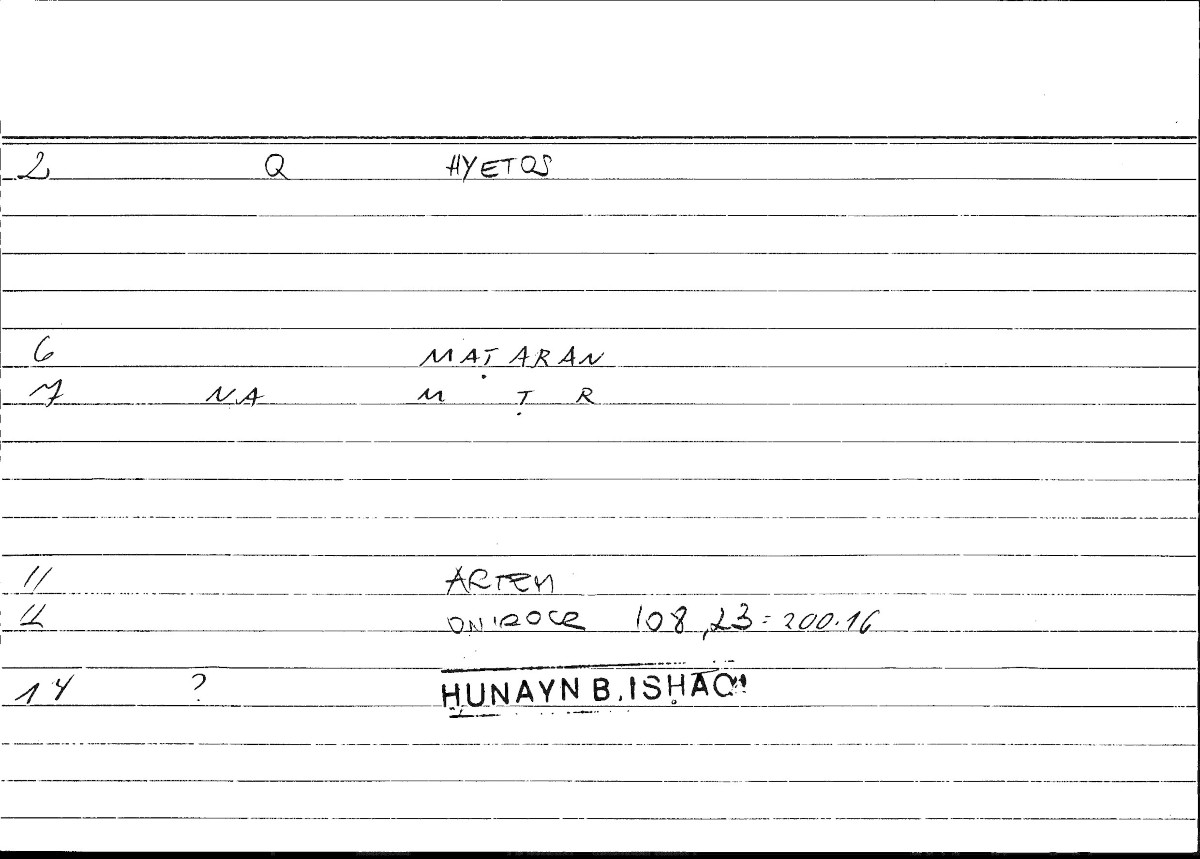 2 Q HYETOS
6 MAṬARAN
7 NA M Ṭ R
11 ARTEM
12 ONIROCR 108,23=200.16
14 ? HUNAYN B. ISHAQ